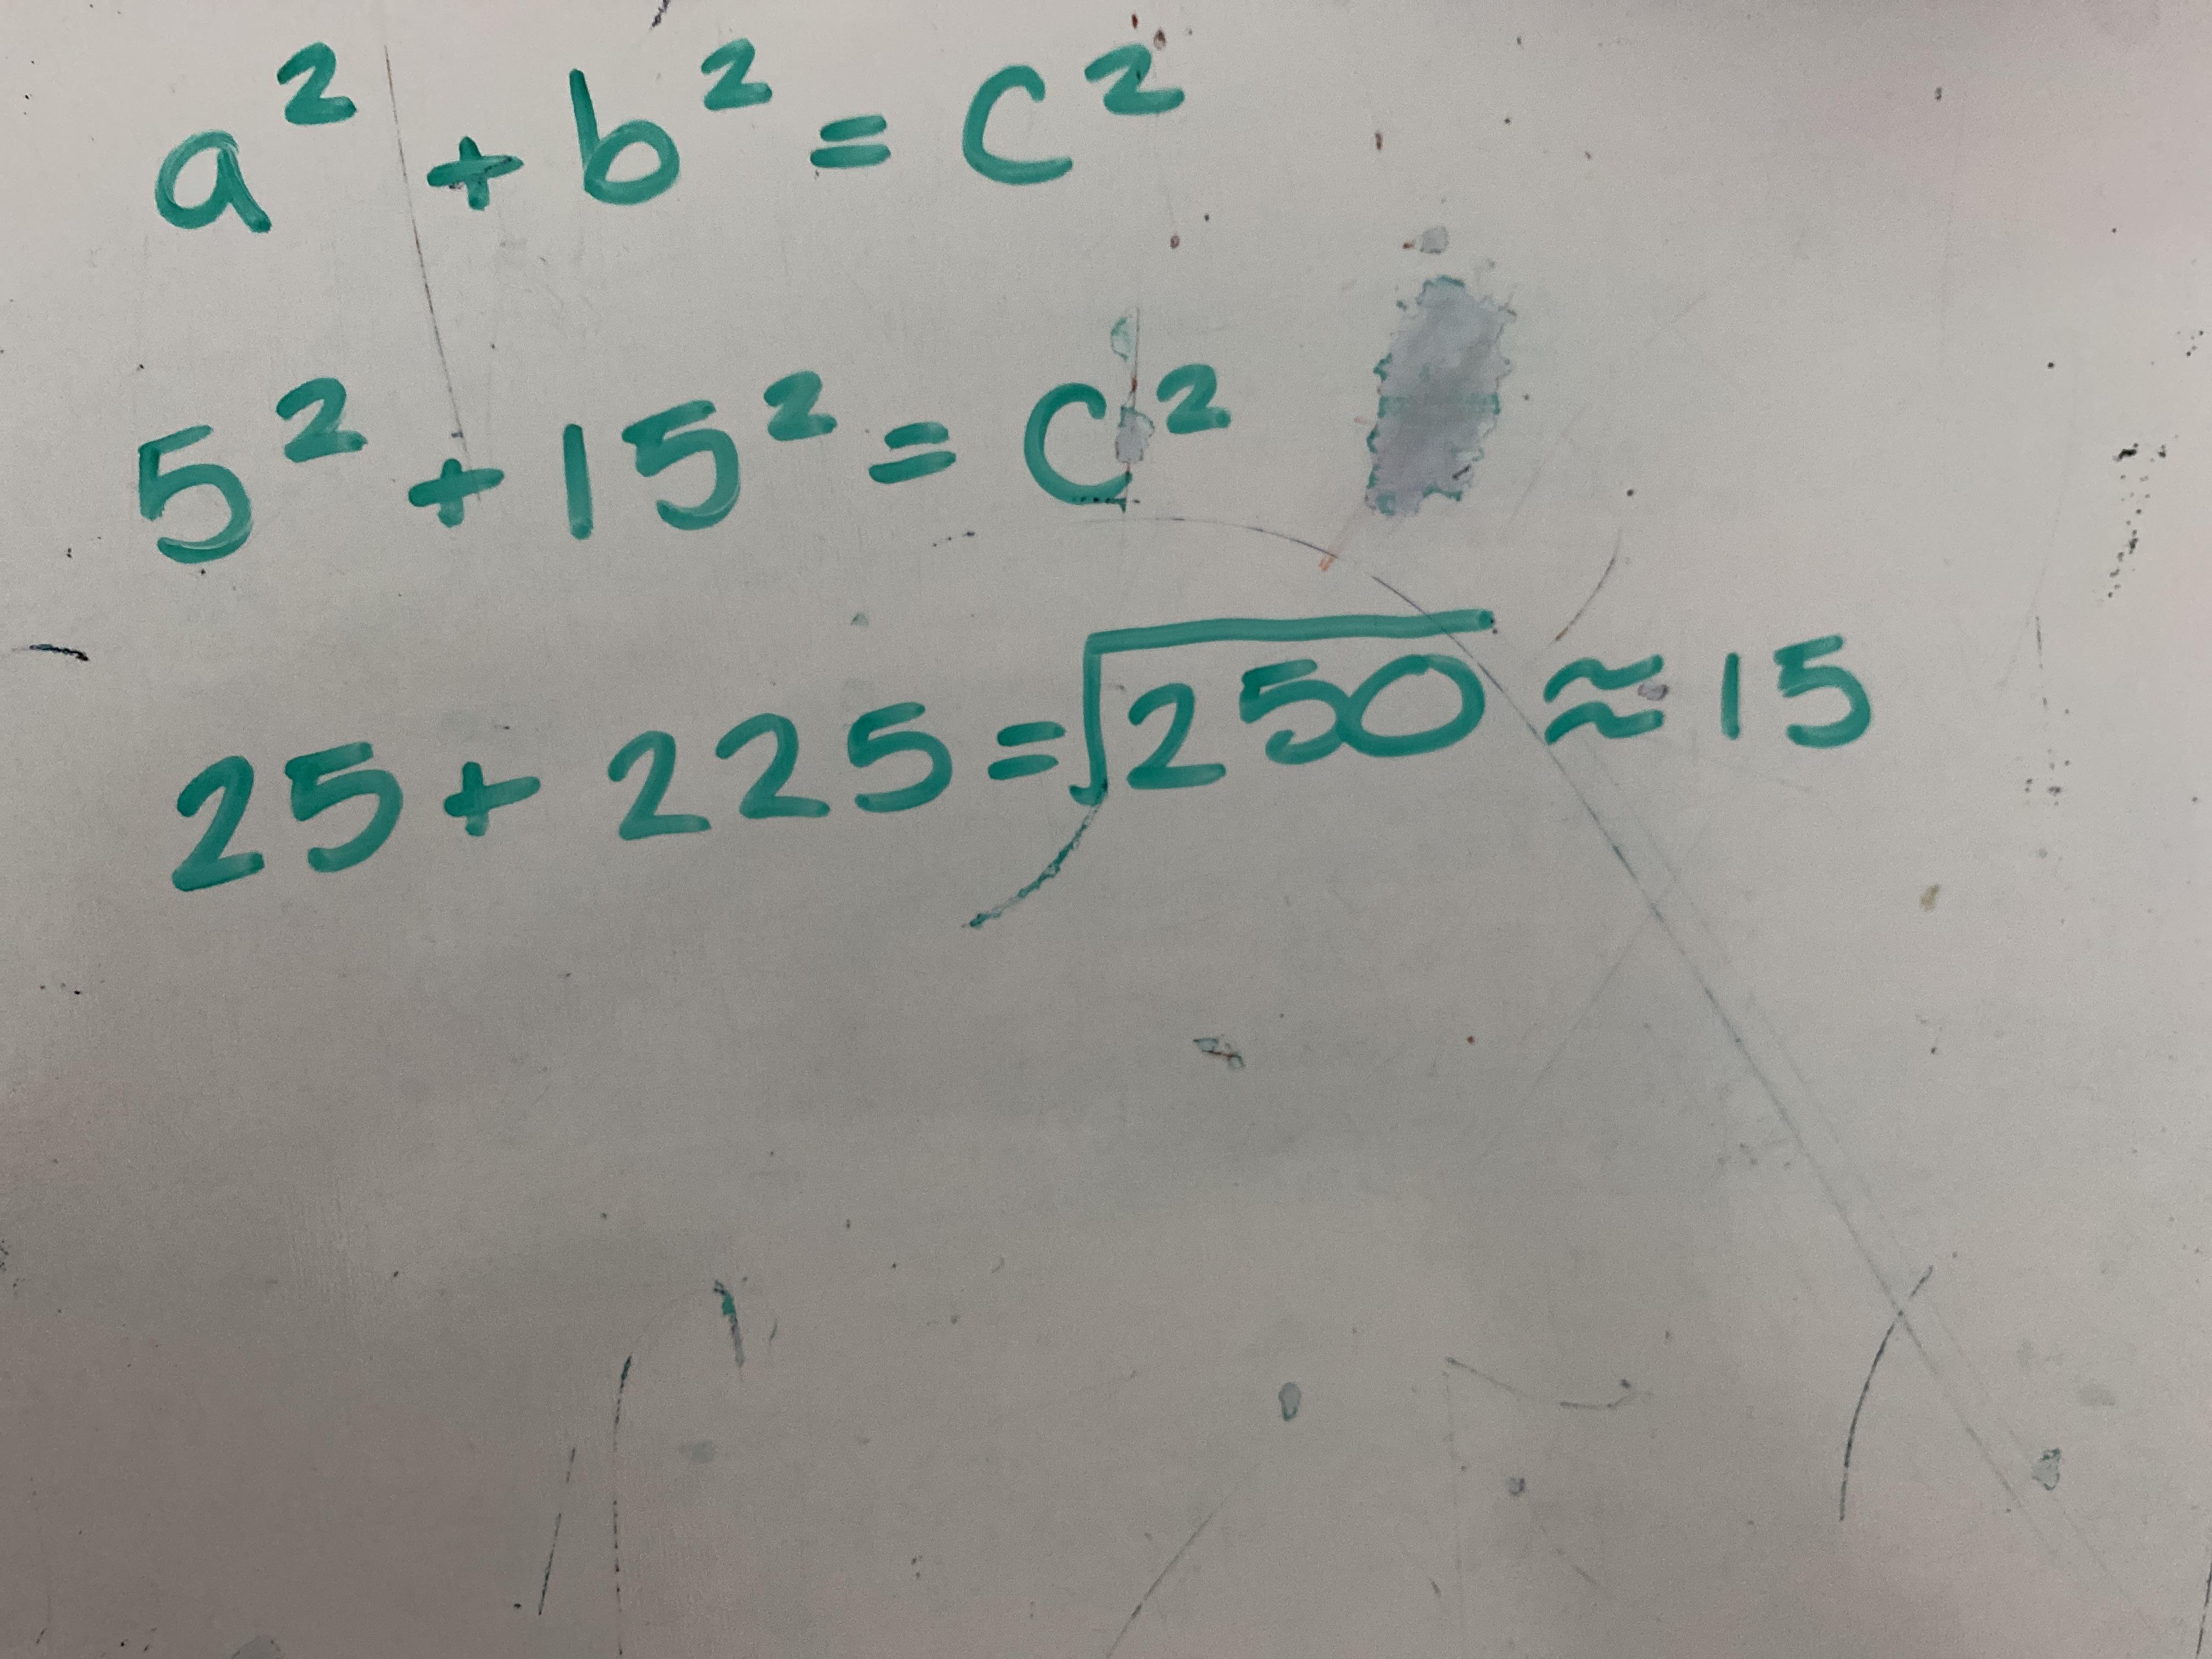 a² + b² = c²
5² + 15² = c²
25 + 225 = √250 ≈ 15